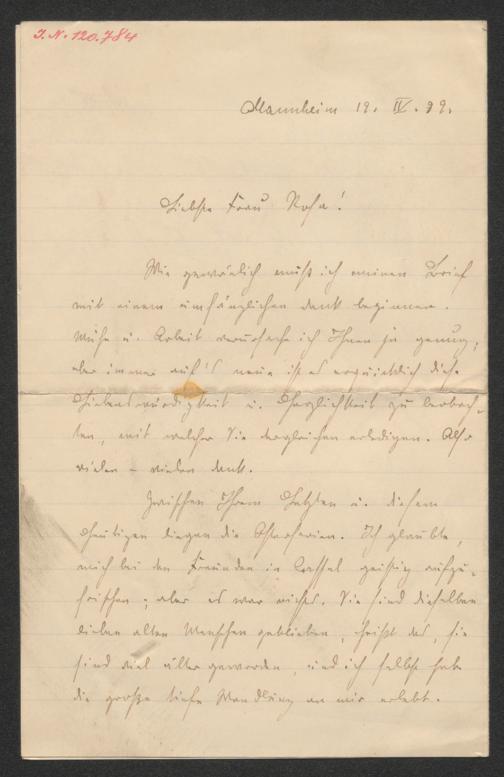 J. N. 120.784
Mannheim 19. IV. 99.
Liebste Frau Rosa!
Wie gewönlich muß ich meinen Brief
mit einem umfänglichen Dank beginnen.
Mühe u. Arbeit verursache ich Ihnen ja genug;
aber immer auf's neue ist es erquicklich die
Liebenswürdigkeit u. Herzlichkeit zu beobach-
ten, mit welcher Sie dergleichen erledigen. Also
vielen – vielen Dank.
Zwischen Ihrem Letzten u. diesem
Heutigen liegen die Osterferien. Ich glaubte,
mich bei den Freunden in Cassel geistig aufzu-
frischen; aber es war nichts. Sie sind dieselben
lieben alten Menschen geblieben, heißt das, sie
sind viel älter geworden, und ich selbst habe
die große tiefe Wandlung an mir erlebt.